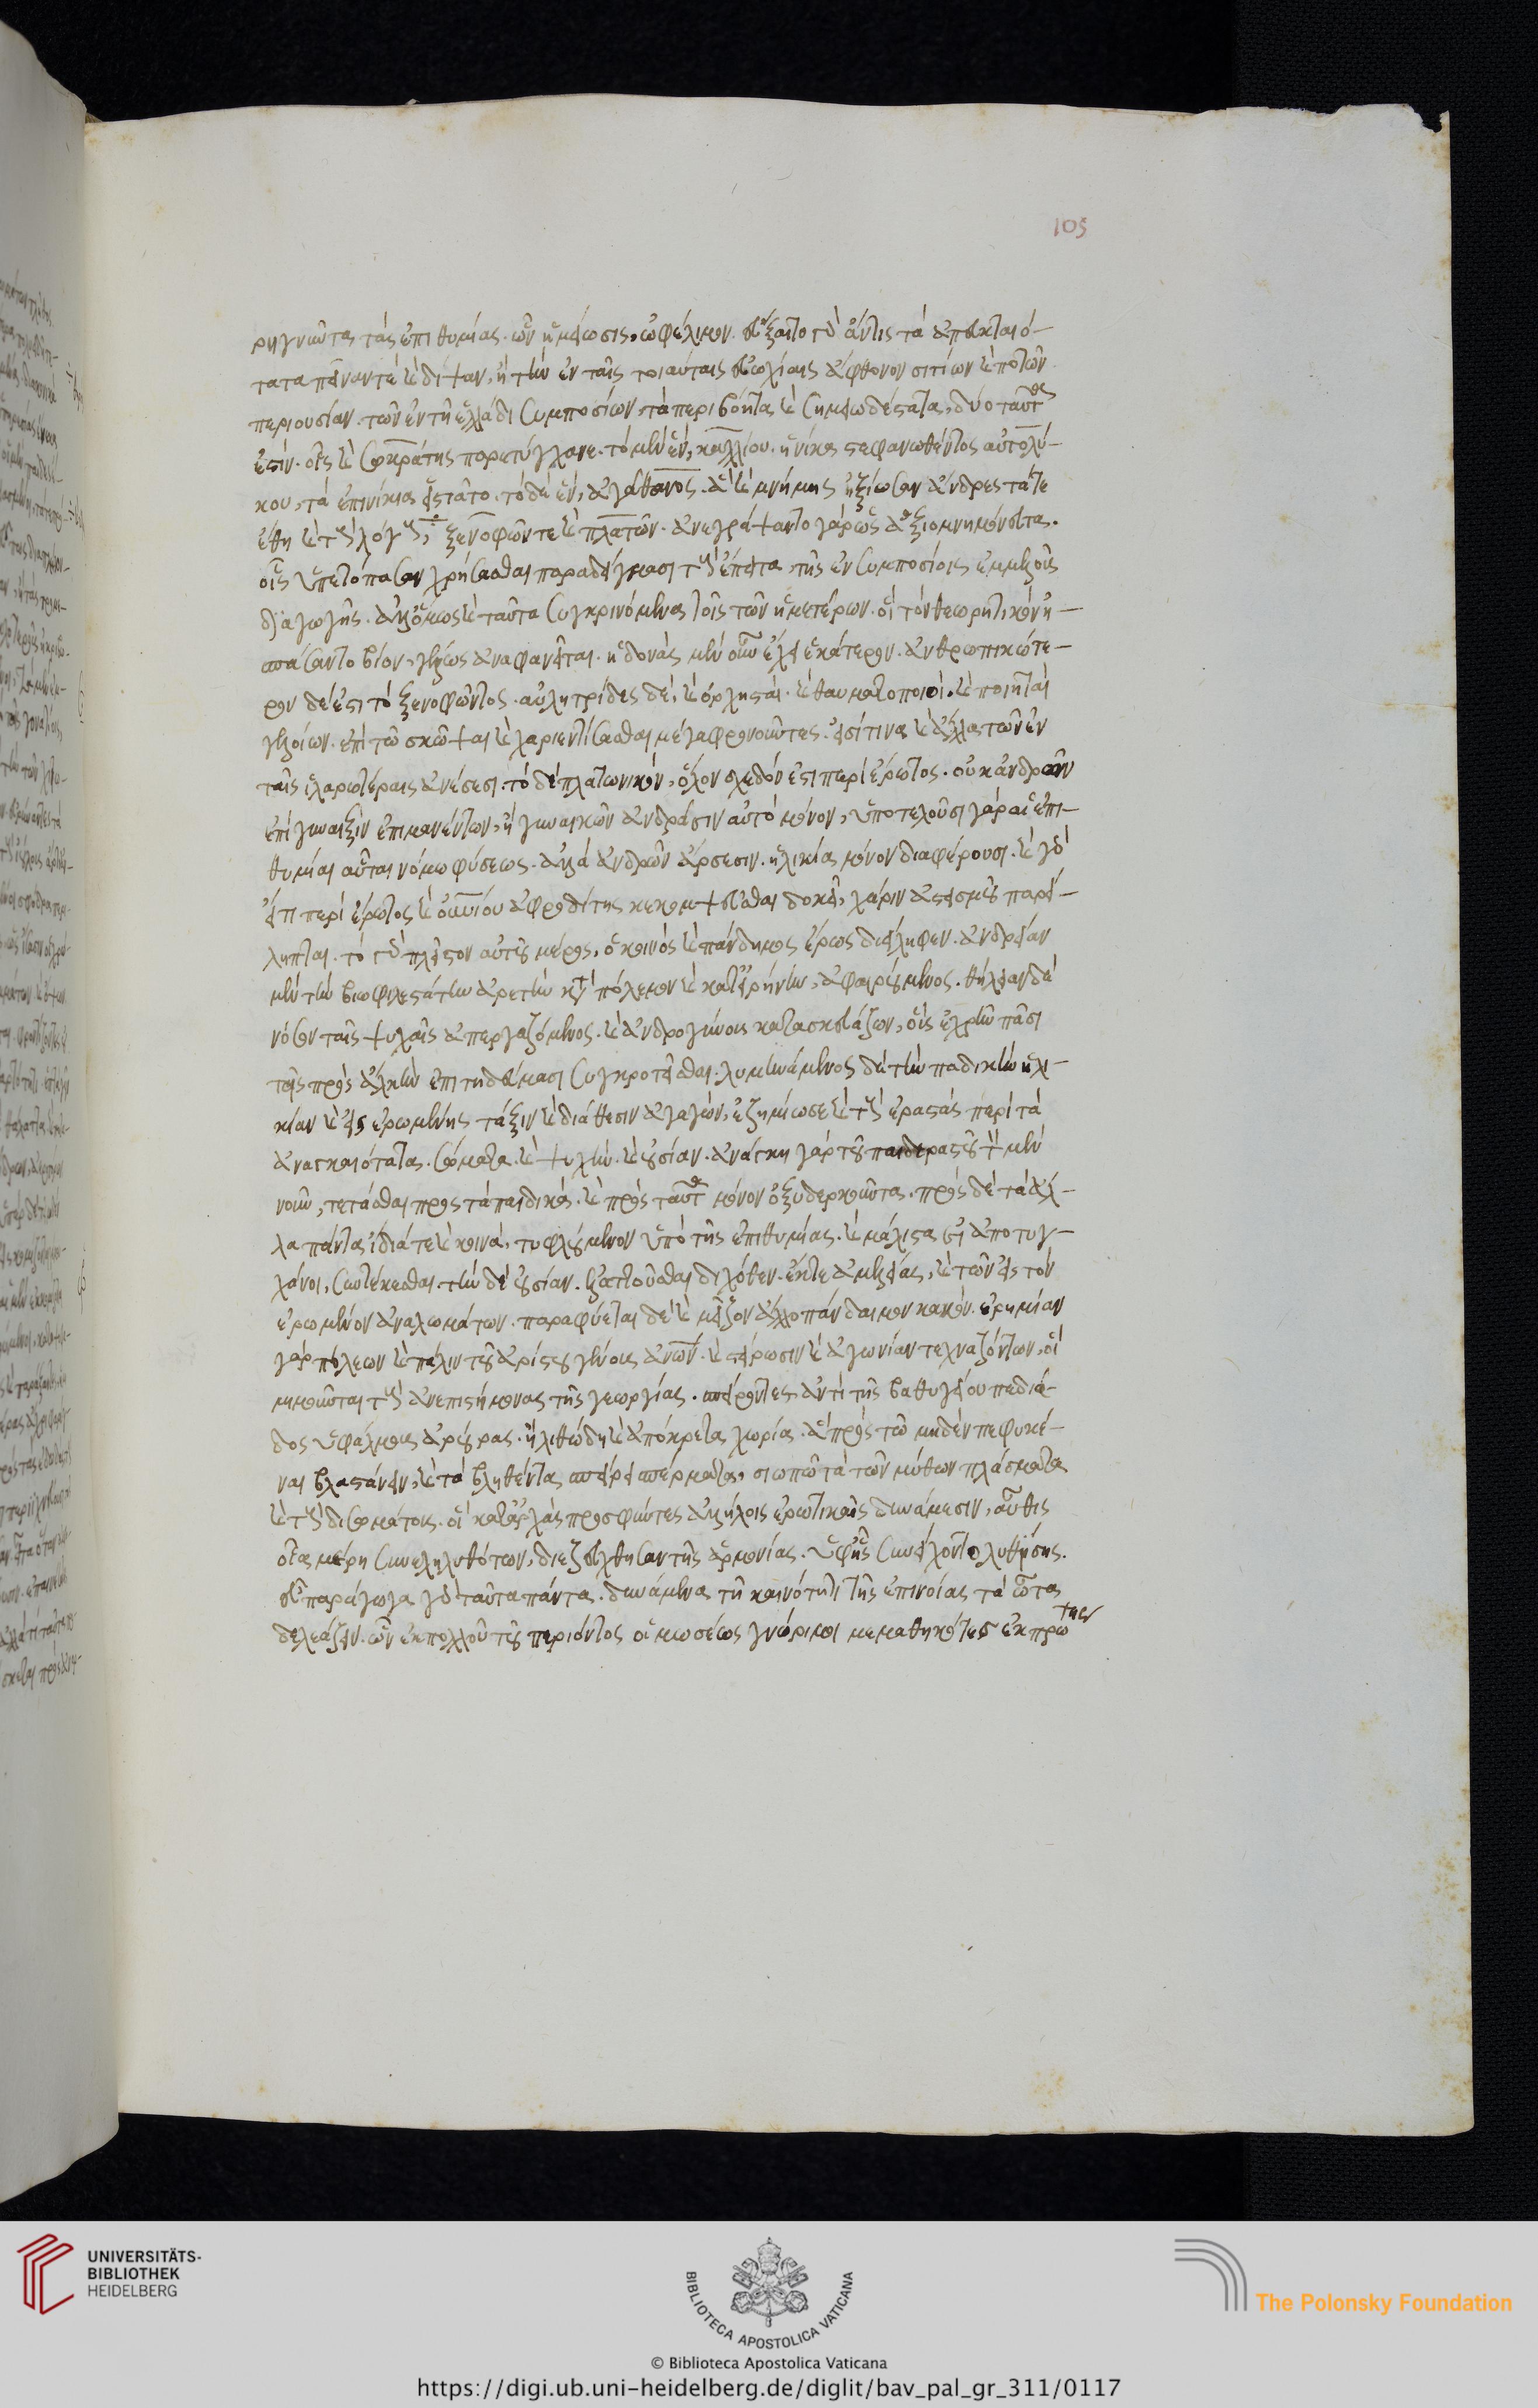 ρηγνῦντας τὰς ἐπιθυμίας· ὧν ἡ μείωσις, ὠφέλιμον. εὔξαιτο γὰρ ἄν τις τὰ ἀπευκταιό-
τατα πεῖναν τὲ καὶ δίψαν, ἢ τὴν ἐν ταῖς τοιαύταις εὐωχίαις ἄφθονον σιτίων καὶ ποτῶν
περιουσίαν. τῶν ἐν τῆ ἑλλάδι συμποσίων, τὰ περιβόητα καὶ σημειωδέστατα, δύο ταῦτα
ἐστίν. οἷς καὶ σωκράτης παρετύγχανε. τὸ μὲν ἐν, καλλίου. ἡνίκα στεφανωθέντος αὐτολύ-
κου, τὰ ἐπινίκια εἱστιᾶτο. τὸ δὲ ἐν, ἀγάθωνος. ἃ καὶ μνήμης ἠξίωσαν ἄνδρες τά τε
ἔθη καὶ τοὺς λόγους, ξενοφῶν τε καὶ πλάτων. ἀνεγράψαντο γὰρ ὡς ἀξιομνημόνευτα.
οἷς ὑπετόπασαν χρήσασθαι παραδείγμασι τοὺς ἔπειτα, τῆς ἐν συμποσίοις ἐμμελοῦς
διαγωγῆς. ἀλλ' ὅμως καὶ ταῦτα συγκρινόμενα τοῖς τῶν ἡμετέρων. οἳ τὸν θεωρητικὸν ἠ-
σπάσαντο βίον, γέλως ἀναφανεῖται. ἡδονὰς μὲν οὖν ἔχει ἑκάτερον. ἀνθρωπικώτε-
ρον δέ ἐστι τὸ ξενοφῶντος. αὐλητρίδες δὲ, καὶ ὀρχησταὶ. καὶ θαυματοποιοὶ. καὶ ποιηταὶ
γελοίων. ἐπὶ τῶ σκῶψαι καὶ χαριεντίσασθαι μέγα φρονοῦντες. εἰσί τινα καὶ ἄλλα τῶν ἐν
ταῖς ἱλαρωτέραις ἀνέσεσι. τὸ δὲ πλατωνικὸν, ὅλον σχεδόν ἐστι περὶ ἔρωτος. οὐκ ἀνδρῶν
ἐπὶ γυναιξὶν ἐπιμανέντων, ἢ γυναικῶν ἀνδράσιν αὐτὸ μόνον, ὑποτελοῦσι γὰρ αἱ ἐπι-
θυμίαι αὗται νόμω φύσεως. ἀλλὰ ἀνδρῶν ἄρσεσιν. ἡλικία μόνον διαφέρουσι. καὶ γὰρ
εἴ τι περὶ ἔρωτος καὶ οὐρανίου ἀφροδίτης κεκομψεῦσθαι δοκεῖ, χάριν ἀστεισμοῦ παρεί-
ληπται. τὸ γὰρ πλεῖστον αὐτοῦ μέρος, ὁ κοινὸς καὶ πάνδημος ἔρως διείληφεν. ἀνδρείαν
μὲν τὴν βιωφιλεστάτην ἀρετὴν κατὰ πόλεμον καὶ κατ' εἰρήνην, ἀφαιρούμενος. θήλειαν δὲ
νόσον ταῖς ψυχαῖς ἀπεργαζόμενος. καὶ ἀνδρογύνους κατασκευάζων, οὓς ἐχρῆν πᾶσι
τοῖς πρὸς ἀλκὴν ἐπιτηδεύμασι συγκροτεῖσθαι. λυμηνάμενος δὲ τὴν παιδικὴν ἡλι-
κίαν καὶ εἰς ἐρωμένης τάξιν καὶ διάθεσιν ἀγαγὼν, ἐζημίωσε καὶ τοὺς ἐραστὰς περὶ τὰ
ἀναγκαιότατα. σώματα. καὶ ψυχὴν. καὶ οὐσίαν. ἀνάγκη γὰρ τοῦ παιδεραστοῦ τὸν μὲν
νοῦν, τετάσθαι πρὸς τὰ παιδικὰ. καὶ πρὸς ταῦτα μόνον ὀξυδερκοῦντα. πρὸς δὲ τὰ ἄλ-
λα πάντα ἴδιά τε καὶ κοινὰ, τυφλούμενον ὑπὸ τῆς ἐπιθυμίας. καὶ μάλιστα εἰ ἀποτυγ-
χάνοι, συντήκεσθαι. τὴν δὲ οὐσίαν. ἐλαττοῦσθαι διχόθεν. ἔκ τε ἀμελείας, καὶ τῶν εἰς τὸν
ἐρώμενον ἀναλωμάτων. παραφύεται δὲ καὶ μεῖζον ἄλλο πάνδημον κακὸν. ἐρημίαν
γὰρ πόλεων καὶ πάλιν τοῦ ἀρίστου γένους ἀνθρώπων. καὶ στείρωσιν καὶ ἀγονίαν τεχνάζονται, οἳ
μιμοῦνται τοὺς ἀνεπιστήμονας τῆς γεωργίας. σπείροντες ἀντὶ τῆς βαθυγείου πεδιά-
δος ὑφάλμους ἀρούρας. ἢ λιθώδη καὶ ἀπόκροτα χωρία. ἃ πρὸς τῶ μηδὲν πεφυκέ-
ναι βλαστάνειν, καὶ τὰ βληθέντα φθείρει σπέρματα, σιωπῶ τὰ τῶν μύθων πλάσματα
καὶ τοὺς δισωμάτους. οἳ κατ' ἀρχὰς προσφύντες ἀλλήλοις ἑνωτικαῖς δυνάμεσιν, αὖθις
οἷα μέρη συνεληλυθότων, διεζεύχθησαν τῆς ἁρμονίας. ὑφ' ἧς συνείχοντο λυθείσης.
εὐπαράγωγα γὰρ ταῦτα πάντα. δυνάμενα τῆ καινότητι τῆς ἐπινοίας τὰ ὦτα
δελεάζειν. ὧν ἐκ πολλοῦ τοῦ περιόντος οἱ μωσέως γνώριμοι μεμαθηκότες ἐκ πρώτης
105
UNIVERSITÄTS-
BIBLIOTHEK
HEIDELBERG
BIBLIOTECA APOSTOLICA VATICANA
The Polonsky Foundation
© Biblioteca Apostolica Vaticana
https://digi.ub.uni-heidelberg.de/diglit/bav_pal_gr_311/0117